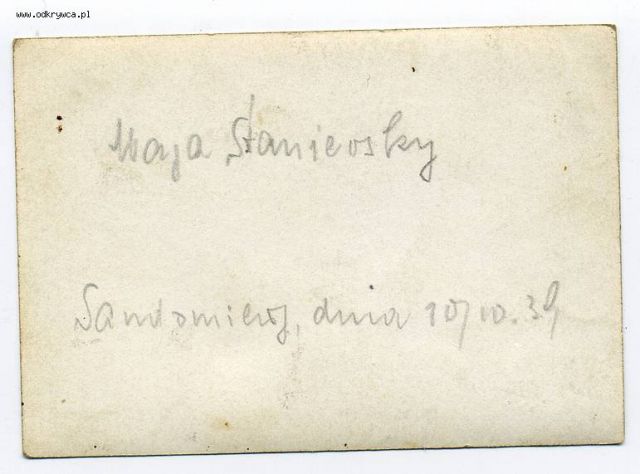 www.odkrywca.pl
Maja Stanievsky
Sandomierz, dnia 10/10.39